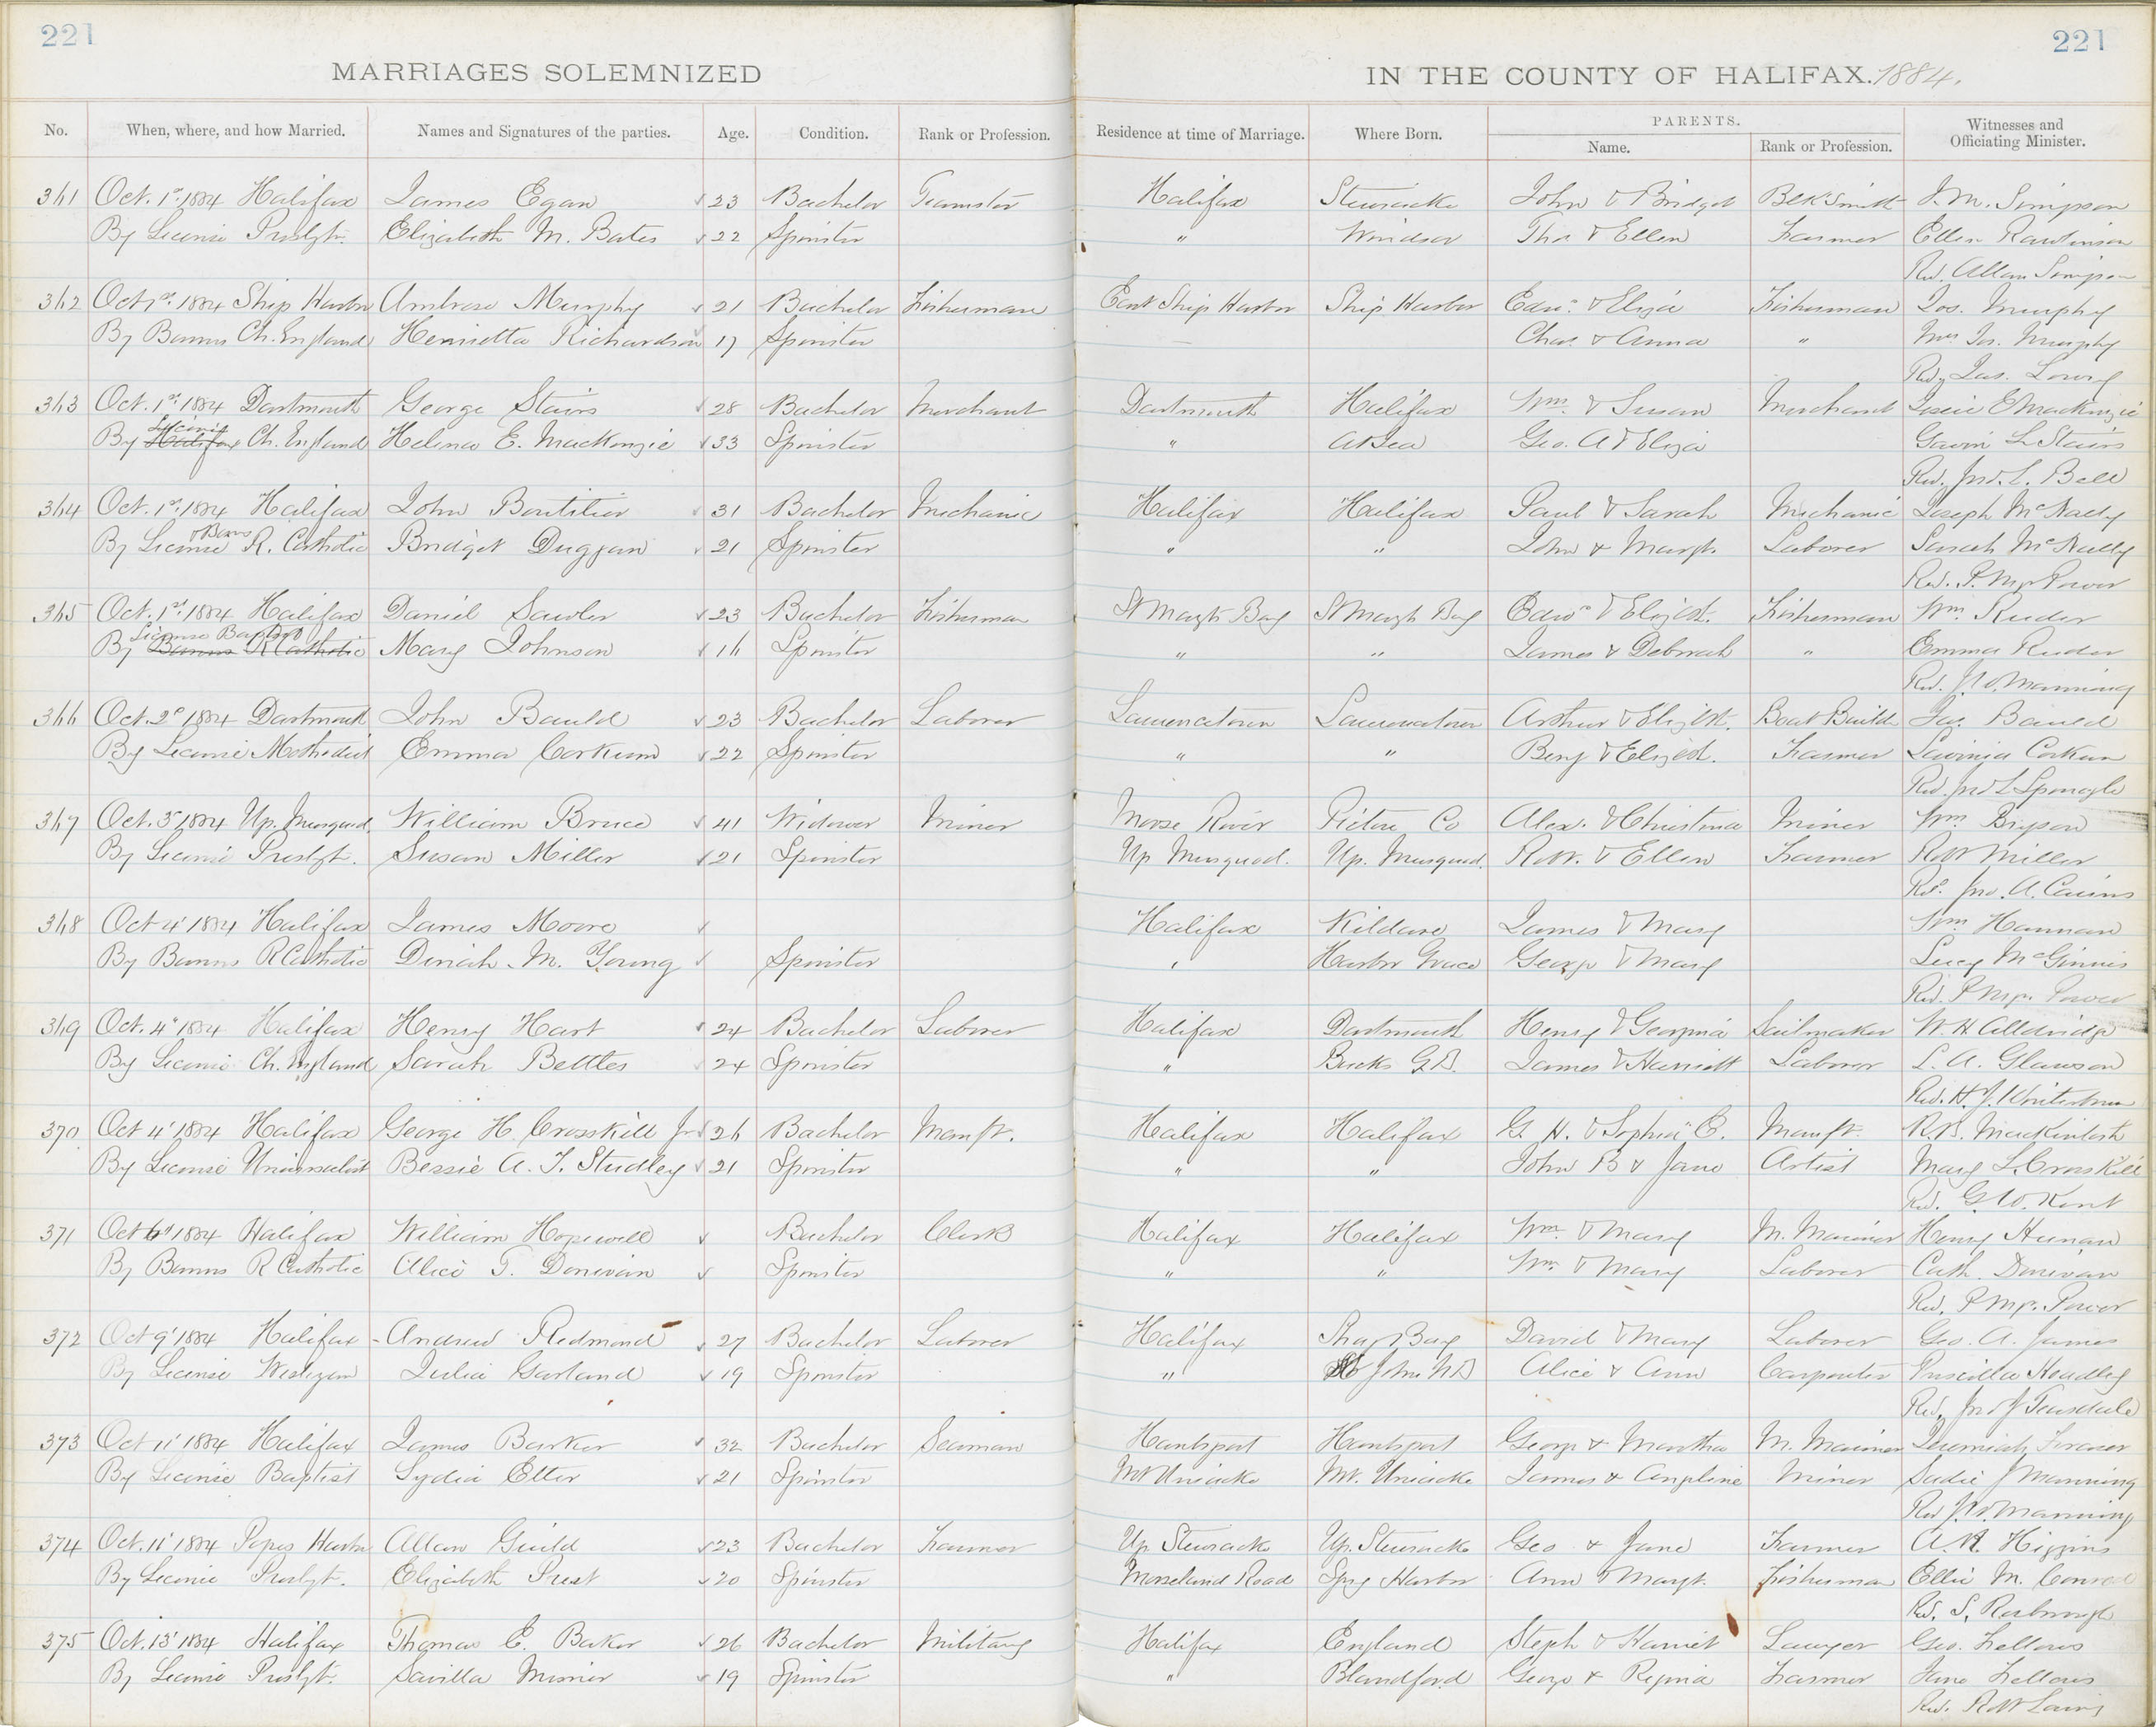 221
221
MARRIAGES SOLEMNIZED IN THE COUNTY OF HALIFAX. 1884.
No. When, where, and how Married. Names and Signatures of the parties. Age. Condition. Rank or Profession. Residence at time of Marriage. Where Born. PARENTS. Name. Rank or Profession. Witnesses and Officiating Minister.
361 Oct. 1st 1884 Halifax James Egan 23 Bachelor Teamster Halifax Stewiacke John & Bridget Blk Smith J. M. Simpson
By License Presbyt. Elizabeth M. Bates 22 Spinster " Windsor Thos & Ellen Farmer Ellen Rawlinson
Rev. Allan Simpson
362 Oct 1st 1884 Ship Harbor Ambrose Murphy 21 Bachelor Fisherman East Ship Harbor Ship Harbor Edwd & Eliza Fisherman Jos. Murphy
By Banns Ch. England Henrietta Richardson 17 Spinster Chas. & Anna " Mrs Jos. Murphy
Rev Jas. Lowry
363 Oct. 1st 1884 Dartmouth George Stairs 28 Bachelor Merchant Dartmouth Halifax Wm & Susan Merchant Jessie E Mackenzie
By License Halifax Ch. England Helena E. MacKenzie 33 Spinster " At Sea Geo. A & Eliza Gavin L Stairs
Rev. Jno. L. Bell
364 Oct. 1st 1884 Halifax John Boutilier 31 Bachelor Mechanic Halifax Halifax Paul & Sarah Mechanic Joseph McNally
By License Banns R. Catholic Bridget Duggan 21 Spinster " " John & Margt. Laborer Sarah McNally
Rev. P. Power
365 Oct. 1st 1884 Halifax Daniel Sawler 23 Bachelor Fisherman St Margts Bay St Margts Bay Edwd & Elizbth. Fisherman Wm
By License Baptist Banns R Catholic Mary Johnson 16 Spinster " " James & Deborah " Emma
Rev. J. W. Manning
366 Oct. 2d 1884 Dartmouth John Bauld 23 Bachelor Laborer Lawrencetown Lawrencetown Arthur & Elizbt. Boat Build Jas. Bauld
By License Methodist Emma Corkum 22 Spinster " " Benj & Elizbth. Farmer Lavinia Corkum
Rev. Jno L Sponagle
367 Oct. 3d 1884 Up. Musquod. William Bruce 41 Widower Miner Moose River Pictou Co Alex. & Christina Miner Wm. Bryson
By License Presbyt. Susan Miller 21 Spinster Up Musquod. Up. Musquod. Robt. & Ellen Farmer Robt Miller
Rev. Jno. A. Cairns
368 Oct 4' 1884 Halifax James Moore Halifax Kildare James & Mary Wm Hannan
By Banns R Catholic Dinah M. Young Spinster " Harbor Grace George & Mary Lucy McGinnis
Rev. P. Power
369 Oct. 4' 1884 Halifax Henry Hart 24 Bachelor Laborer Halifax Dartmouth Henry & Georgina Sailmaker W. H Alldridge
By License Ch. England Sarah Bettles 24 Spinster " Bucks G.B. James & Harriett Laborer L. A. Glawson
Rev. H. J. Winterbourne
370 Oct 4' 1884 Halifax George H. Crosskill Jr 26 Bachelor Manfr. Halifax Halifax G. H. & Sophia C. Manfr. R. B. Mackintosh
By License Universalist Bessie A. T. Studley 21 Spinster " " John B & Jane Artist Mary L. Crosskill
Rev. G. W. Kent
371 Oct 6d 1884 Halifax William Hopewell Bachelor Clerk Halifax Halifax Wm. & Mary M. Mariner Henry
By Banns R Catholic Alice T. Donivan Spinster " " Wm. & Mary Laborer Cath. Donivan
Rev. P. Power
372 Oct 9' 1884 Halifax Andrew Redmond 27 Bachelor Laborer Halifax Shag Bay David & Mary Laborer Geo. A. James
By License Wesleyan Julia Garland 19 Spinster " St Johns N.B Alice & Ann Carpenter Priscilla Headley
Rev. Jno J Teasdale
373 Oct 11' 1884 Halifax James Barker 32 Bachelor Seaman Hantsport Hantsport George & Martha M. Mariner Jeremiah Fraser
By License Baptist Lydia Etter 21 Spinster Mt Uniacke Mt. Uniacke James & Angeline Miner Sadie J Manning
Rev J. W. Manning
374 Oct. 11' 1884 Popes Harbor Allan Guild 23 Bachelor Farmer Up Stewiacke Up. Stewiacke Geo & Jane Farmer A. H. Higgins
By License Presbyt. Elizabeth Prest 20 Spinster Mooseland Road Spry Harbor Ann & Margt. Fisherman Ellie M. Conrod
Rev. S. Rosborough
375 Oct. 13' 1884 Halifax Thomas E. Baker 26 Bachelor Military Halifax England Steph & Harriet Lawyer Geo. Fellows
By License Presbyt. Savilla Minier 19 Spinster " Blandford George & Regina Farmer Jane Fellows
Rev. Robt Laing